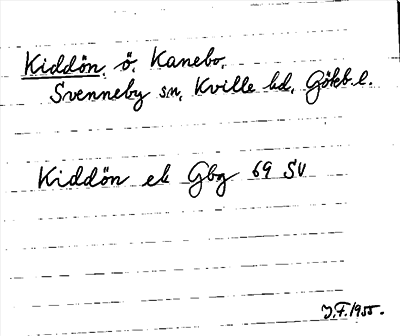 Kiddön, ö, Kanebo,
Svenneby sn, Kville hd, Gökb. l.
Kiddön ek Gbg 69 SV
J.F. 1955.